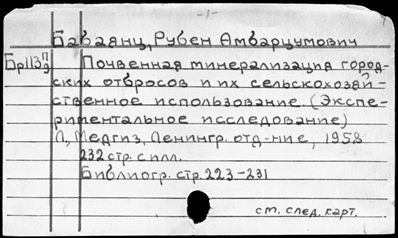 -1-
Бабаянц, Рубен Амбарцумович
Бр113 П/9 Почвенная минерализация город-
ских отбросов и их сельскохозяй-
ственное использование. (Экспе-
риментальное исследование)
Л, Медгиз, Ленингр. отд-ние, 1958
232 стр. с илл.
Библиогр. стр. 223-231
см. след. карт.